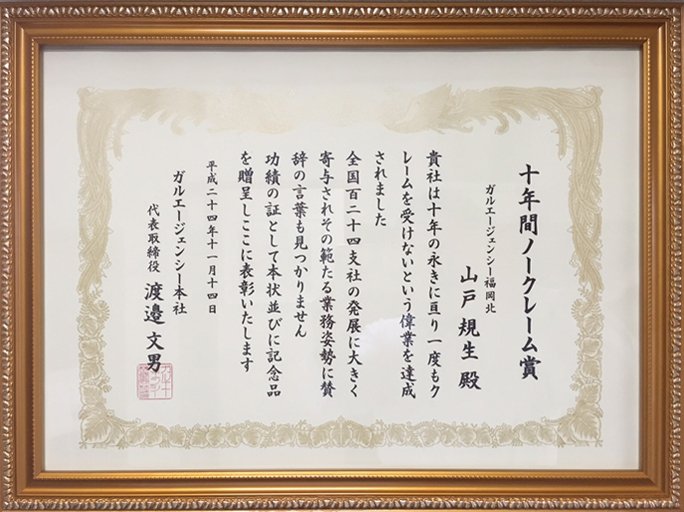 十年間ノークレーム賞
ガルエージェンシー福岡北
山戸規生 殿
貴社は十年の永きに亘り一度もク
レームを受けないという偉業を達成
されました
全国百二十四支社の発展に大きく
寄与されその範たる業務姿勢に賛
辞の言葉も見つかりません
功績の証として本状並びに記念品
を贈呈しここに表彰いたします
平成二十四年十一月十四日
ガルエージェンシー本社
代表取締役 渡邉文男